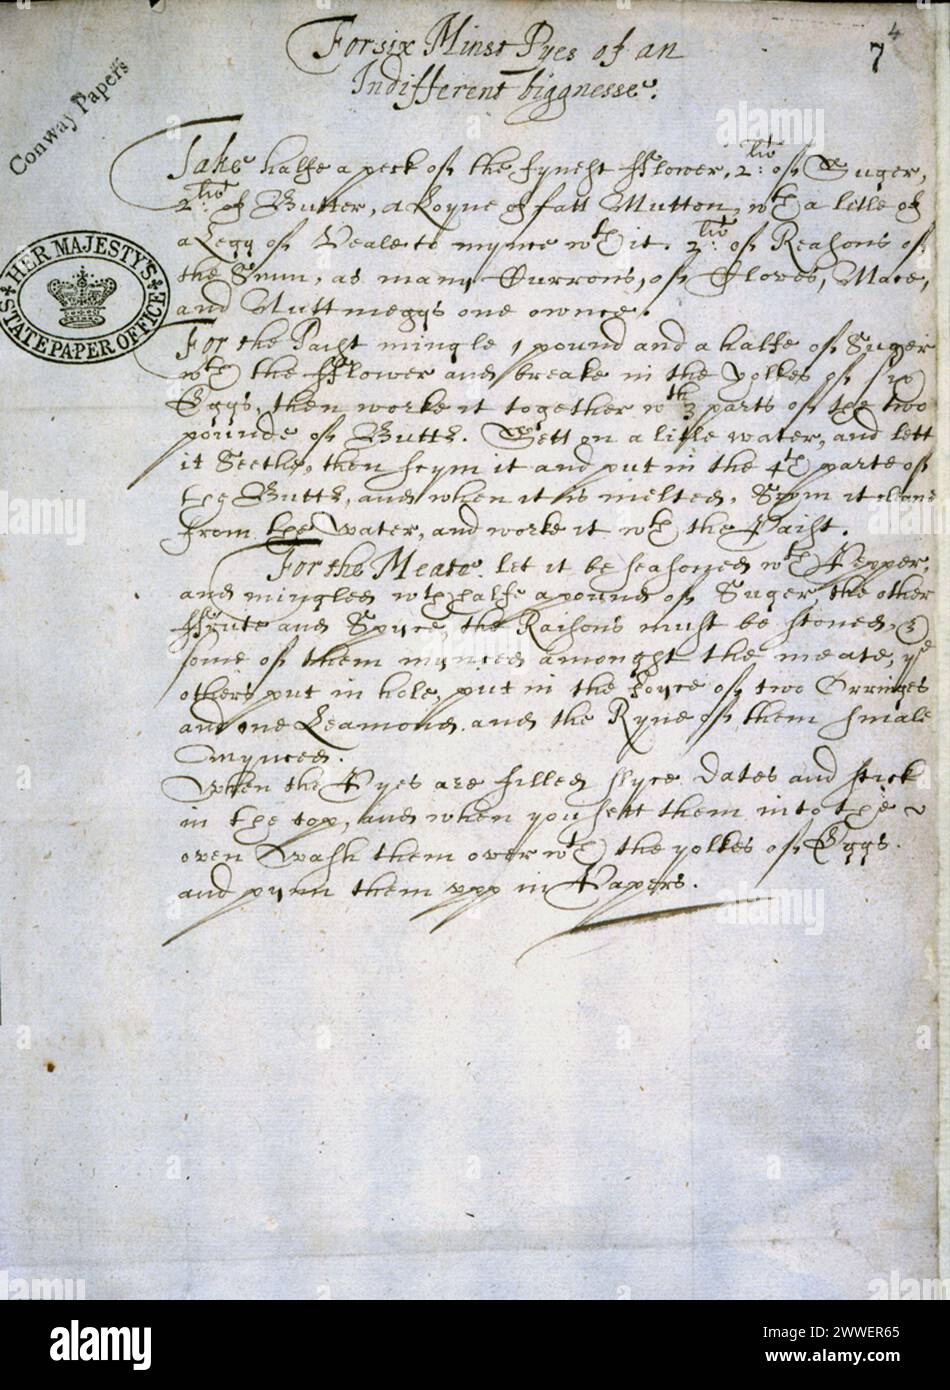 4
7
For six Minst Pyes of an
Indifferent biggnesse.
Conway Papers
Take halfe a peck of the fynest fflower, 2:li of Suger,
2:li of Butter, a Loyne of fatt Mutton, wth a litle of
a Legg of Veale to mynce wth it. 2:li of Reasons of
the Sunn, as many Currons, of Cloves, Mace,
and Nuttmeggs one ownce.
HER MAJESTY'S STATE PAPER OFFICE
For the Paist mingle 1 pound and a halfe of Suger
wth the fflower and breake in the yolkes of six
Eggs, then worke it together wth 3 parts of the two
pounds of Butter. Sett on a litle water, and lett
it Seethe, then scym it and put in the 4th parte of
the Butter, and when it is melted, Scym it cleane
from the Water, and worke it wth the Paist.
For the Meate let it be seasoned wth Pepper,
and mingled wth halfe a pound of Suger, the other
ffruite and Spyce, the Raisons must be stoned, &
some of them mynced amongst the meate, ye
others put in hole, put in the Joyce of two Orringes
and one Leamond, and the Ryne of them smale
mynced.
When the Pyes are filled slyce Dates and stick
in the top, and when you sett them into the
oven Wash them over wth the yolkes of Eggs.
and pynn them upp in Papers.
alamy
Image ID: 2WWER65
www.alamy.com